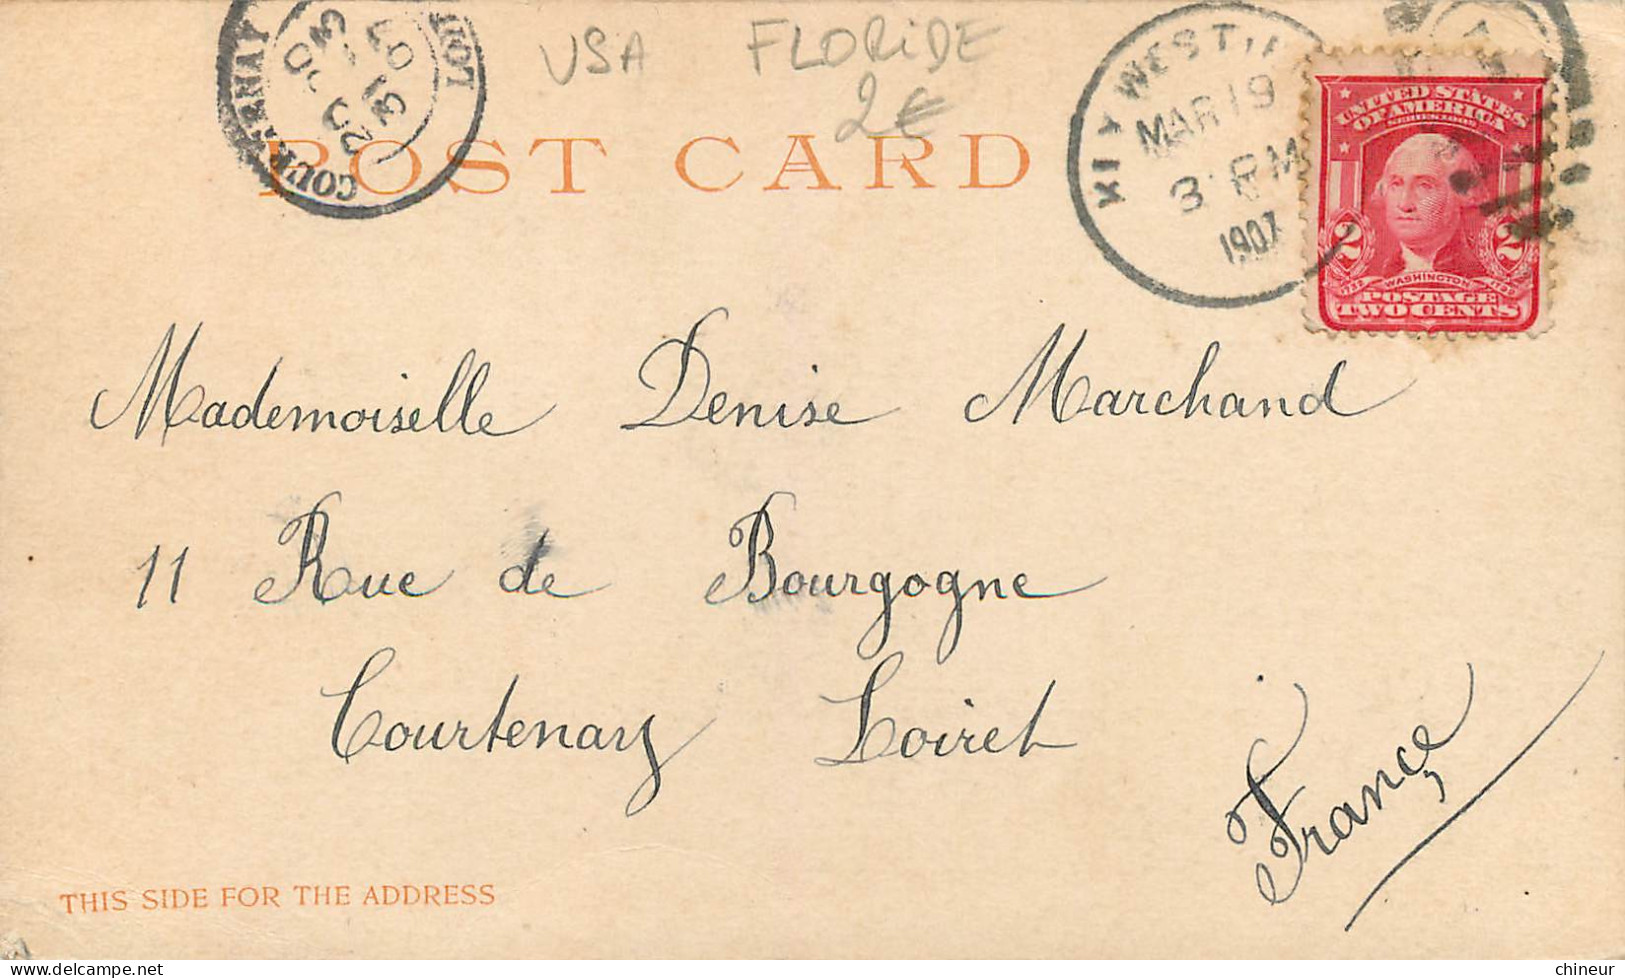 USA FLORIDE
2€
COURTENAY
LOIRET
KEY WEST,
MAR 19
3 PM
1907
UNITED STATES
OF AMERICA
SERIES 1902
2 2
1732 WASHINGTON 1799
POSTAGE
TWO CENTS
POST CARD
Mademoiselle Denise Marchand
11 Rue de Bourgogne
Courtenay Loiret
France
THIS SIDE FOR THE ADDRESS
chineur